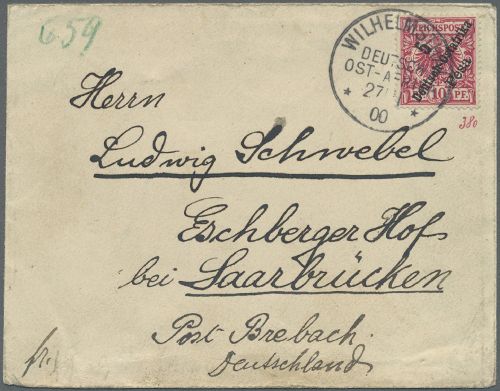 659
WILHELM
DEUTSCH
OST-AFRIKA
27
00
REICHSPOST
5
Deutsch-Ostafrika
Pesa
10 PF.
380
Herrn
Ludwig Schwebel
Eschberger Hof
bei Saarbrücken
Post Brebach.
Deutschland